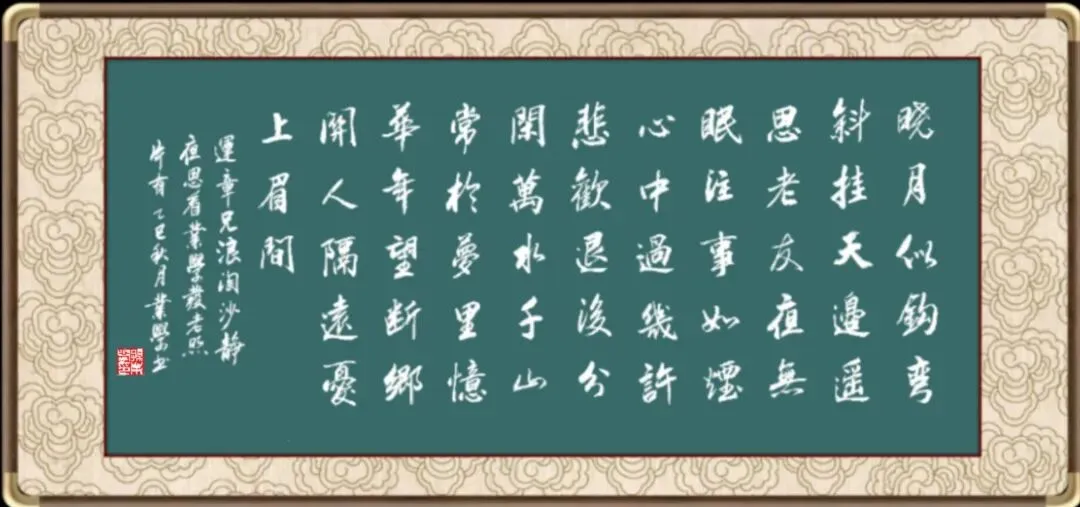 晓月似鈎弯
斜挂天邊遥
思老友夜無
眠注事如煙
心中過幾許
悲歡退後分
閑萬水千山
常於夢里憶
華年望断鄉
關人隔遠憂
上眉間
運章兄浪淘沙静
夜思看業學發老照
片有乙巳秋月業學书